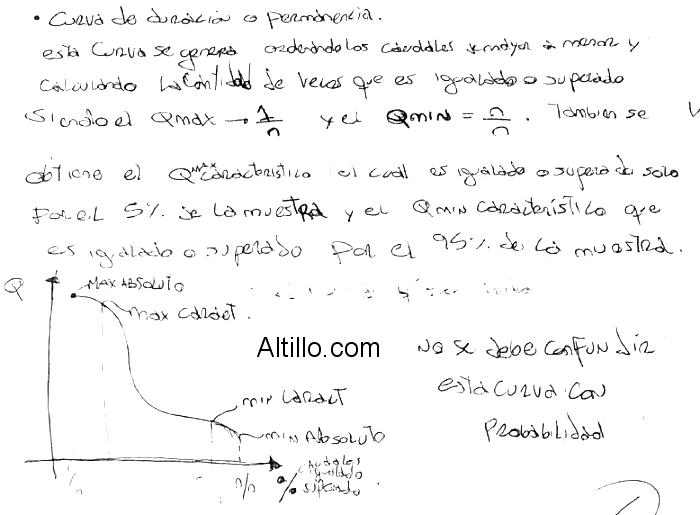 • Curva de duración o permanencia.
esta Curva se genera ordenando los caudales de mayor a menor y
calculando la cantidad de veces que es igualado o superado
siendo el Qmax → 1/n y el Qmin = n/n. Tambien se
obtiene el Qmax característico el cual es igualado o superado solo
por el 5% de la muestra y el Qmin característico que
es igualado o superado por el 95% de la muestra.
Q
MAX ABSOLUTO
max caract.
Altillo.com
min caract
min Absoluto
no se debe confundir
esta curva con
probabilidad
1/n
n/n
% caudales
igualado
superado